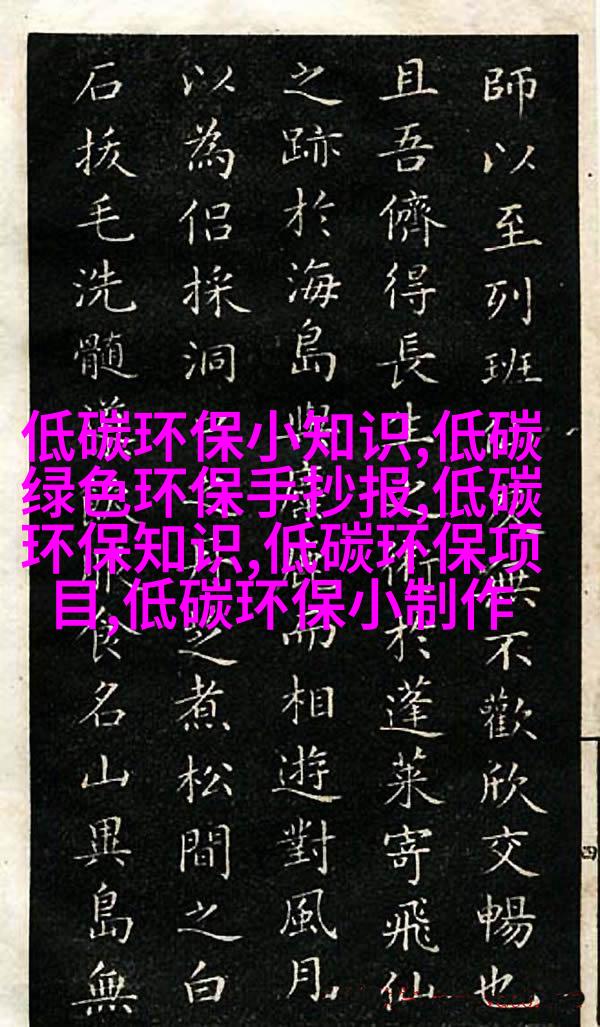 師以至列班無不歡欣交暢也
且吾儕得長生之術於蓬萊寄飛仙
之跡於海島與而相遊對風月
以為侶採洞之煮松間之白
石拔毛洗髓食名山異島無
低碳环保小知识,低碳
绿色环保手抄报,低碳
环保知识,低碳环保项
目,低碳环保小制作